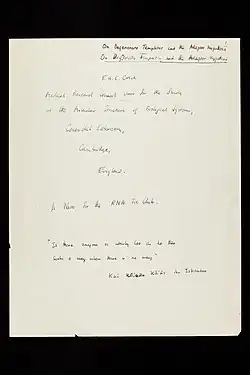 On Degenerate Templates and the Adaptor Hypothesis
On Degenerate Templates and the Adaptor Hypothesis
F.H.C. Crick
Medical Research Council Unit for the Study
of the Molecular Structure of Biological Systems,
Cavendish Laboratory,
Cambridge,
England.
A Note for the RNA Tie Club.
"Is there anyone so utterly lost as he that
seeks a way where there is no way."
Kai Kāʾūs ibn Iskandar